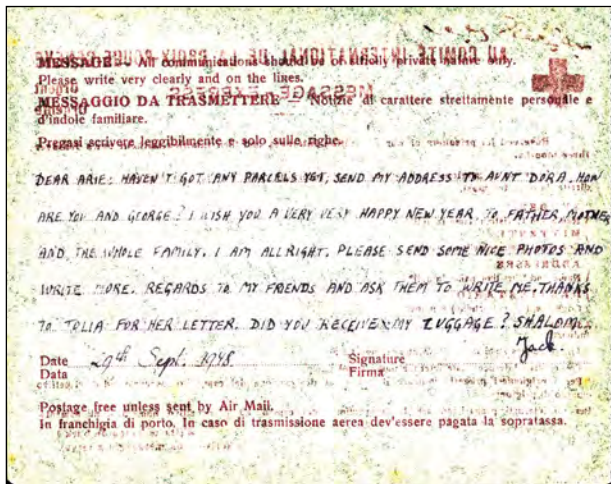 MESSAGE — All communications should be of strictly private nature only.
Please write very clearly and on the lines.
MESSAGGIO DA TRASMETTERE — Notizie di carattere strettamente personale e
d'indole familiare.
Pregasi scrivere leggibilmente e solo sulle righe.
DEAR ARIE: HAVEN'T GOT ANY PARCELS YET, SEND MY ADDRESS TO AUNT DORA. HOW
ARE YOU AND GEORGE? I WISH YOU A VERY VERY HAPPY NEW YEAR TO FATHER, MOTHER
AND THE WHOLE FAMILY. I AM ALLRIGHT. PLEASE SEND SOME NICE PHOTOS AND
WRITE MORE. REGARDS TO MY FRIENDS AND ASK THEM TO WRITE ME. THANKS
TO TOLIA FOR HER LETTER. DID YOU RECEIVE MY LUGGAGE? SHALOM.
Jack.
Date 29th Sept. 1948 Signature
Data Firma
Postage free unless sent by Air Mail.
In franchigia di porto. In caso di trasmissione aerea dev'essere pagata la sopratassa.